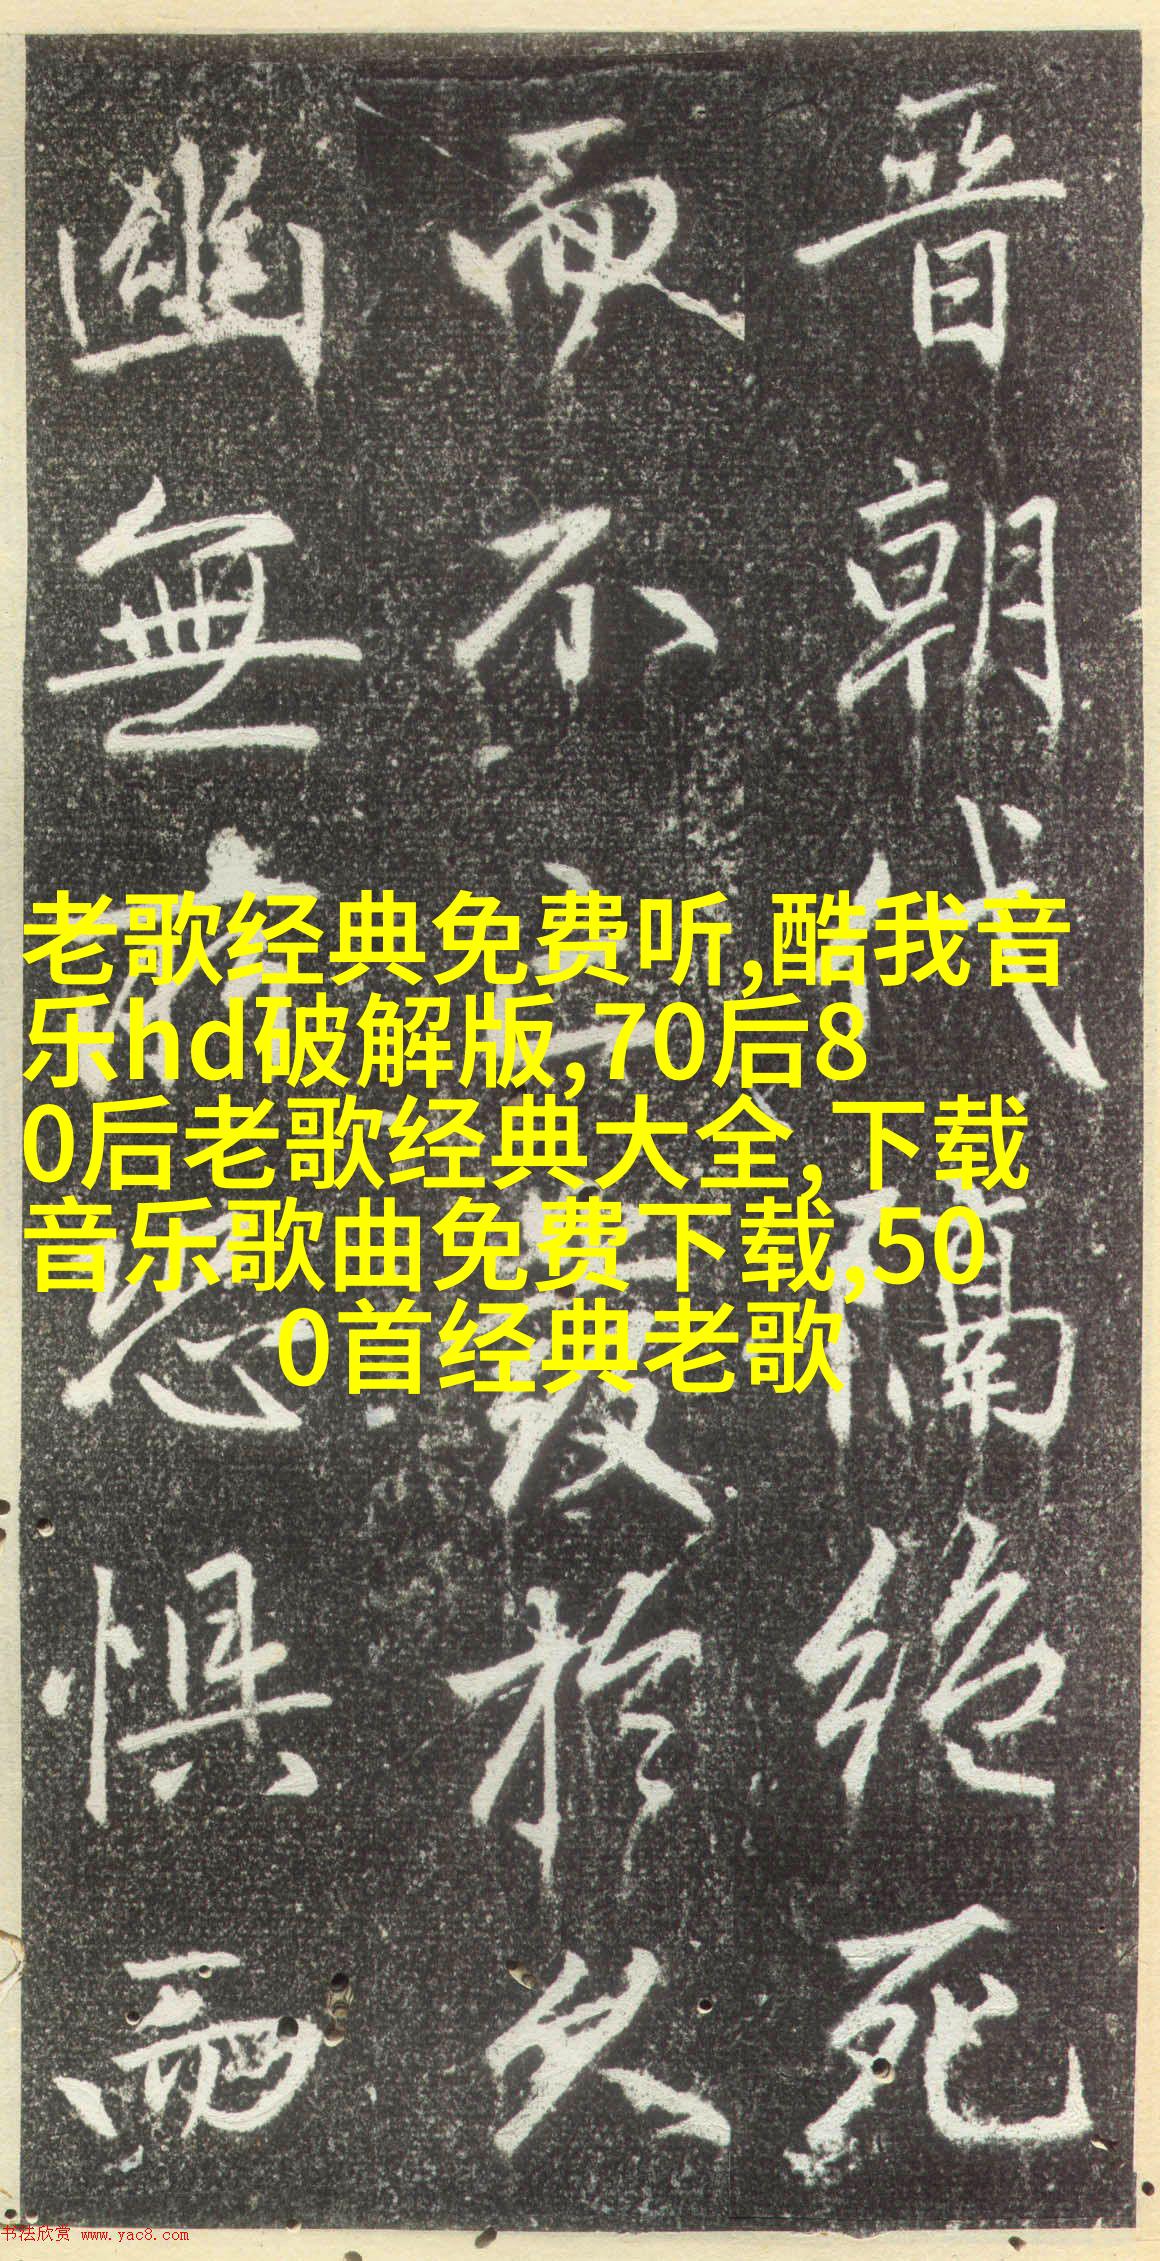 晋朝代隔絶死
而不於久
幽無惧而
老歌经典免费听,酷我音
乐hd破解版,70后8
0后老歌经典大全,下载
音乐歌曲免费下载,50
0首经典老歌
书法欣赏 www.yac8.com